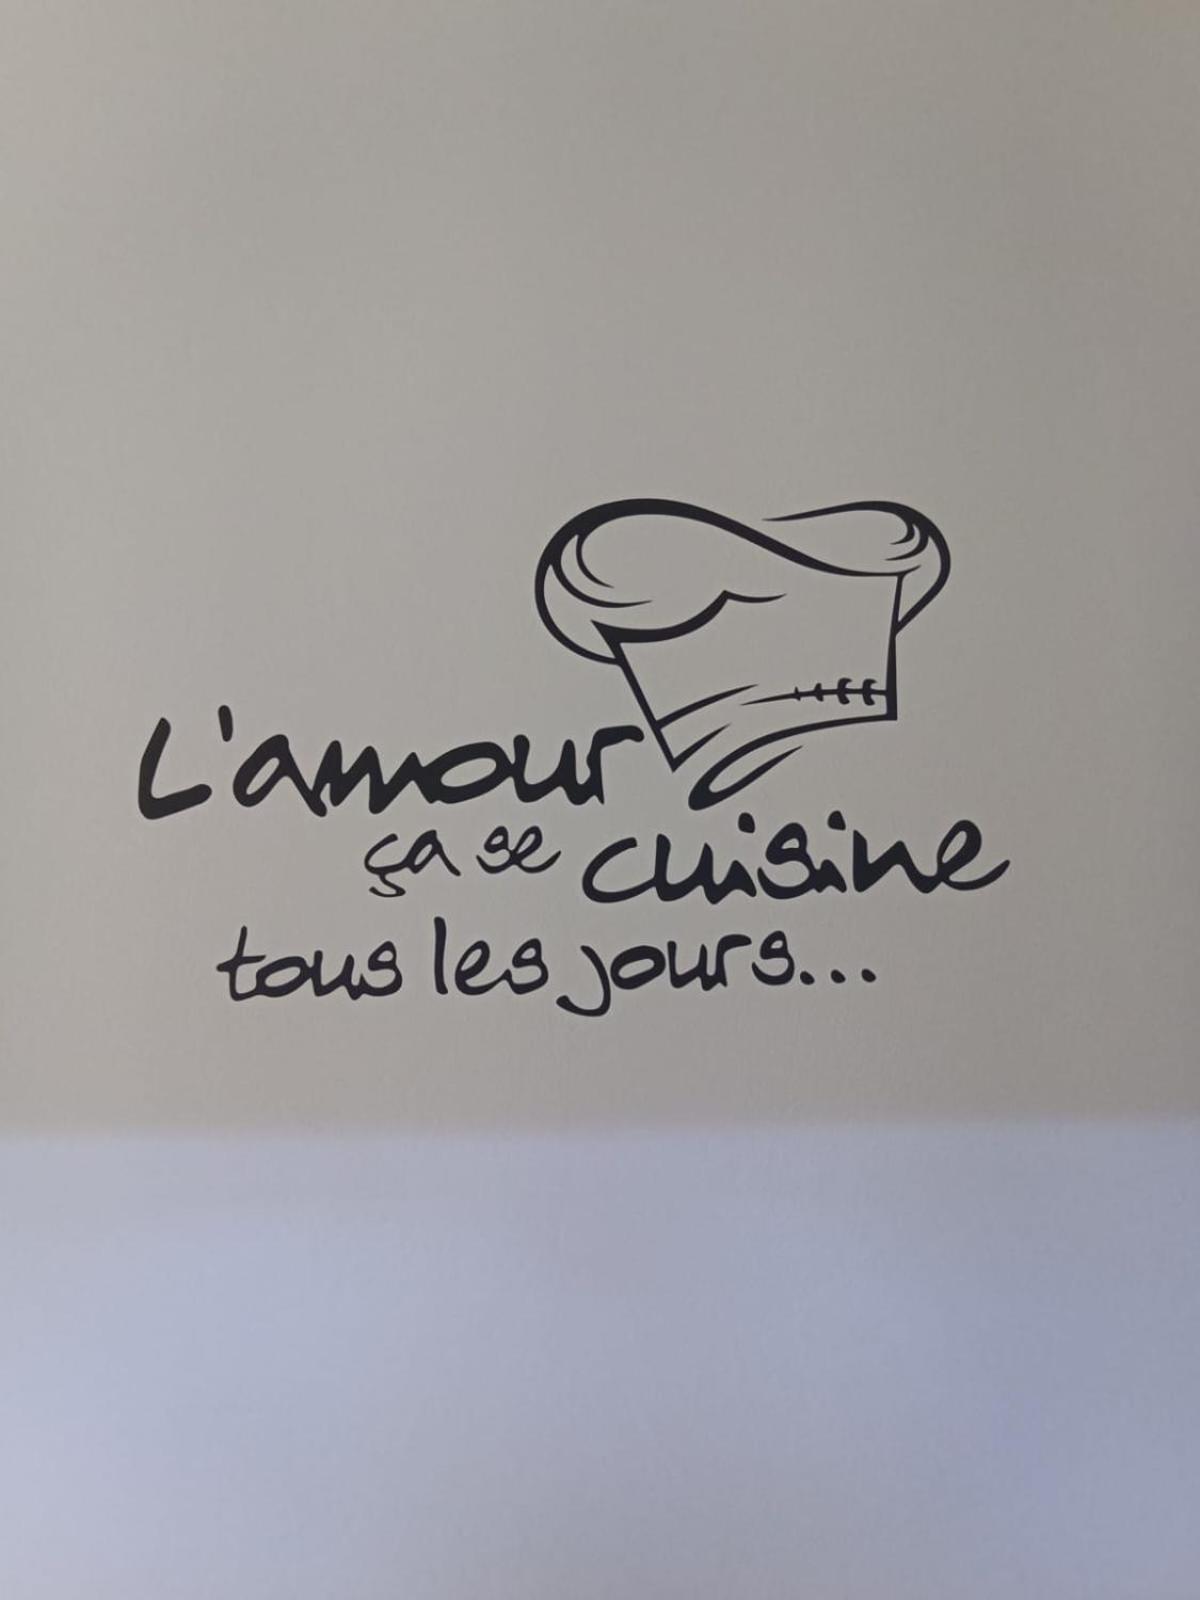 L'amour
ça se cuisine
tous les jours...